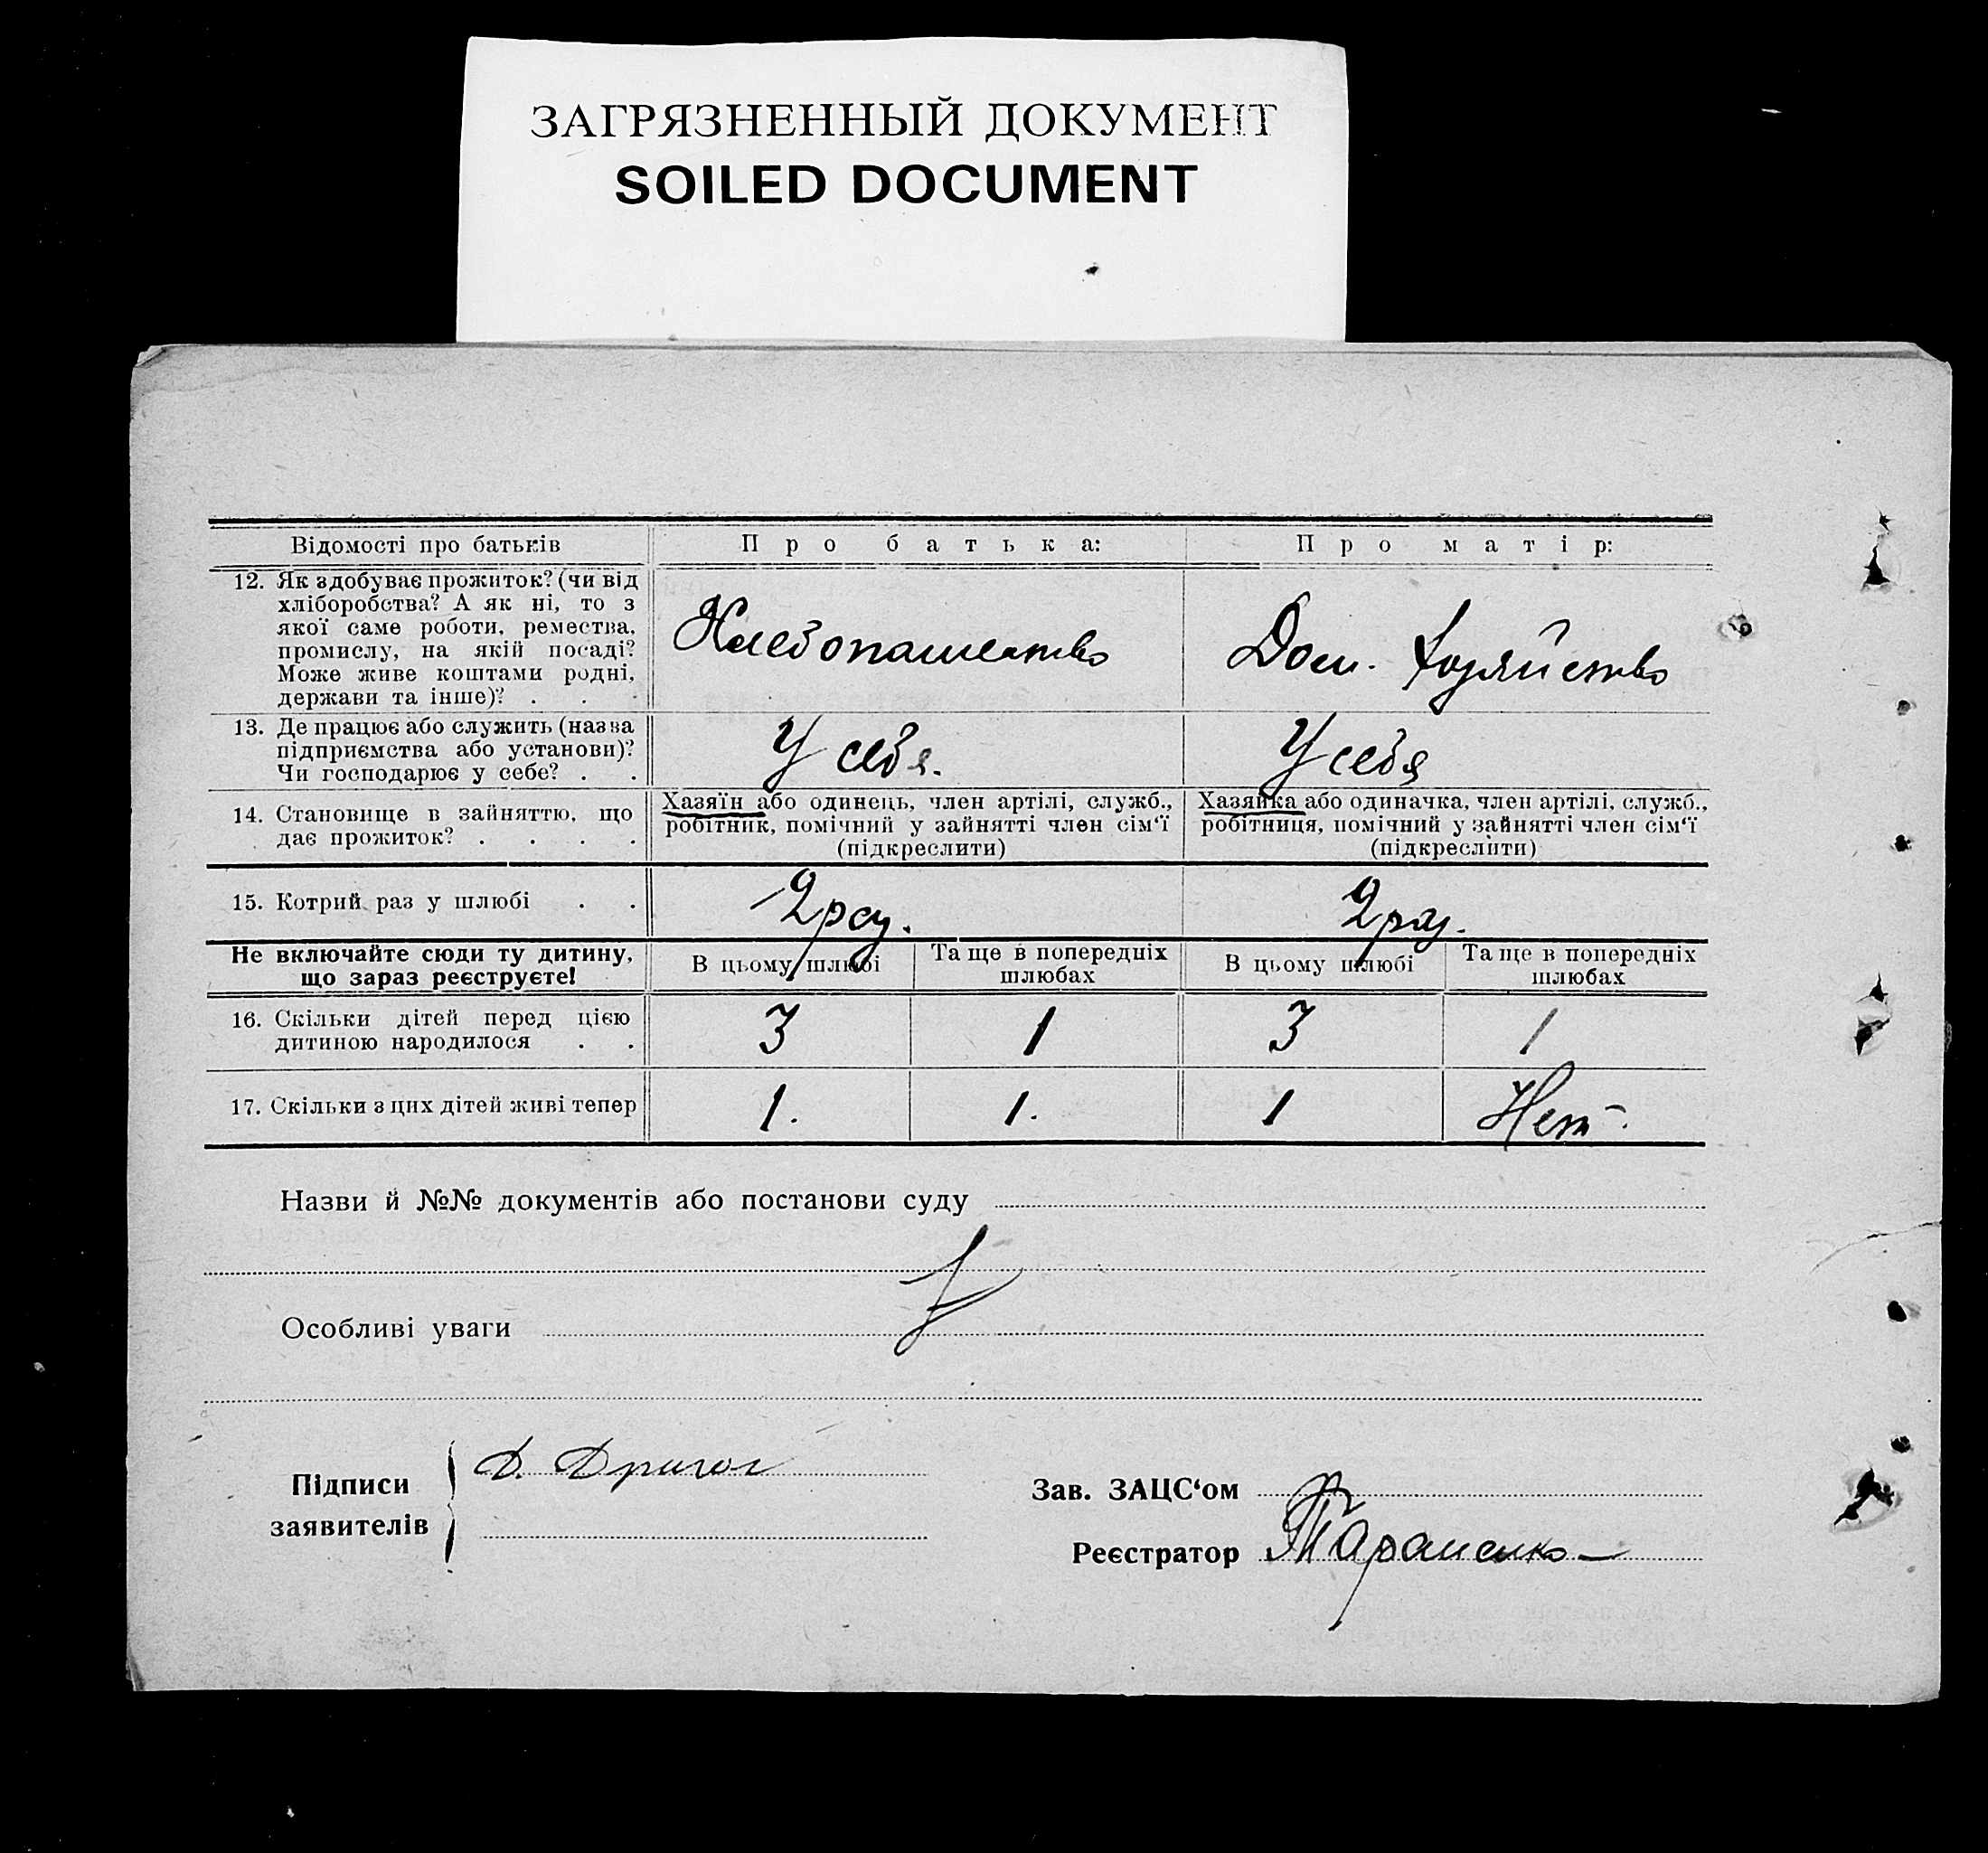 ЗАГРЯЗНЕННЫЙ ДОКУМЕНТ
SOILED DOCUMENT
Відомості про батьків
Про батька:
Про матір:
12. Як здобуває прожиток? (чи від
хліборобства? А як ні, то з
якої саме роботи, ремества,
промислу, на якій посаді?
Може живе коштами родні,
держави та інше)? . . .
Хлебопашество
Дом. хозяйство
13. Де працює або служить (назва
підприємства або установи)?
Чи господарює у себе? . .
У себя.
У себя
14. Становище в зайняттю, що
дає прожиток? . . . .
Хазяїн або одинець, член артілі, служб.,
робітник, помічний у зайнятті член сім‘ї
(підкреслити)
Хазяйка або одиначка, член артілі, служб.,
робітниця, помічний у зайнятті член сім‘ї
(підкреслити)
15. Котрий раз у шлюбі . .
2 раз.
2 раз.
Не включайте сюди ту дитину,
що зараз реєструєте!
В цьому шлюбі
Та ще в попередніх
шлюбах
В цьому шлюбі
Та ще в попередніх
шлюбах
16. Скільки дітей перед цією
дитиною народилося . .
3
1
3
1
17. Скільки з цих дітей живі тепер
1.
1.
1
Нет.
Назви й №№ документів або постанови суду
Особливі уваги
Підписи
заявителів
Д.
Зав. ЗАЦС‘ом
Реєстратор